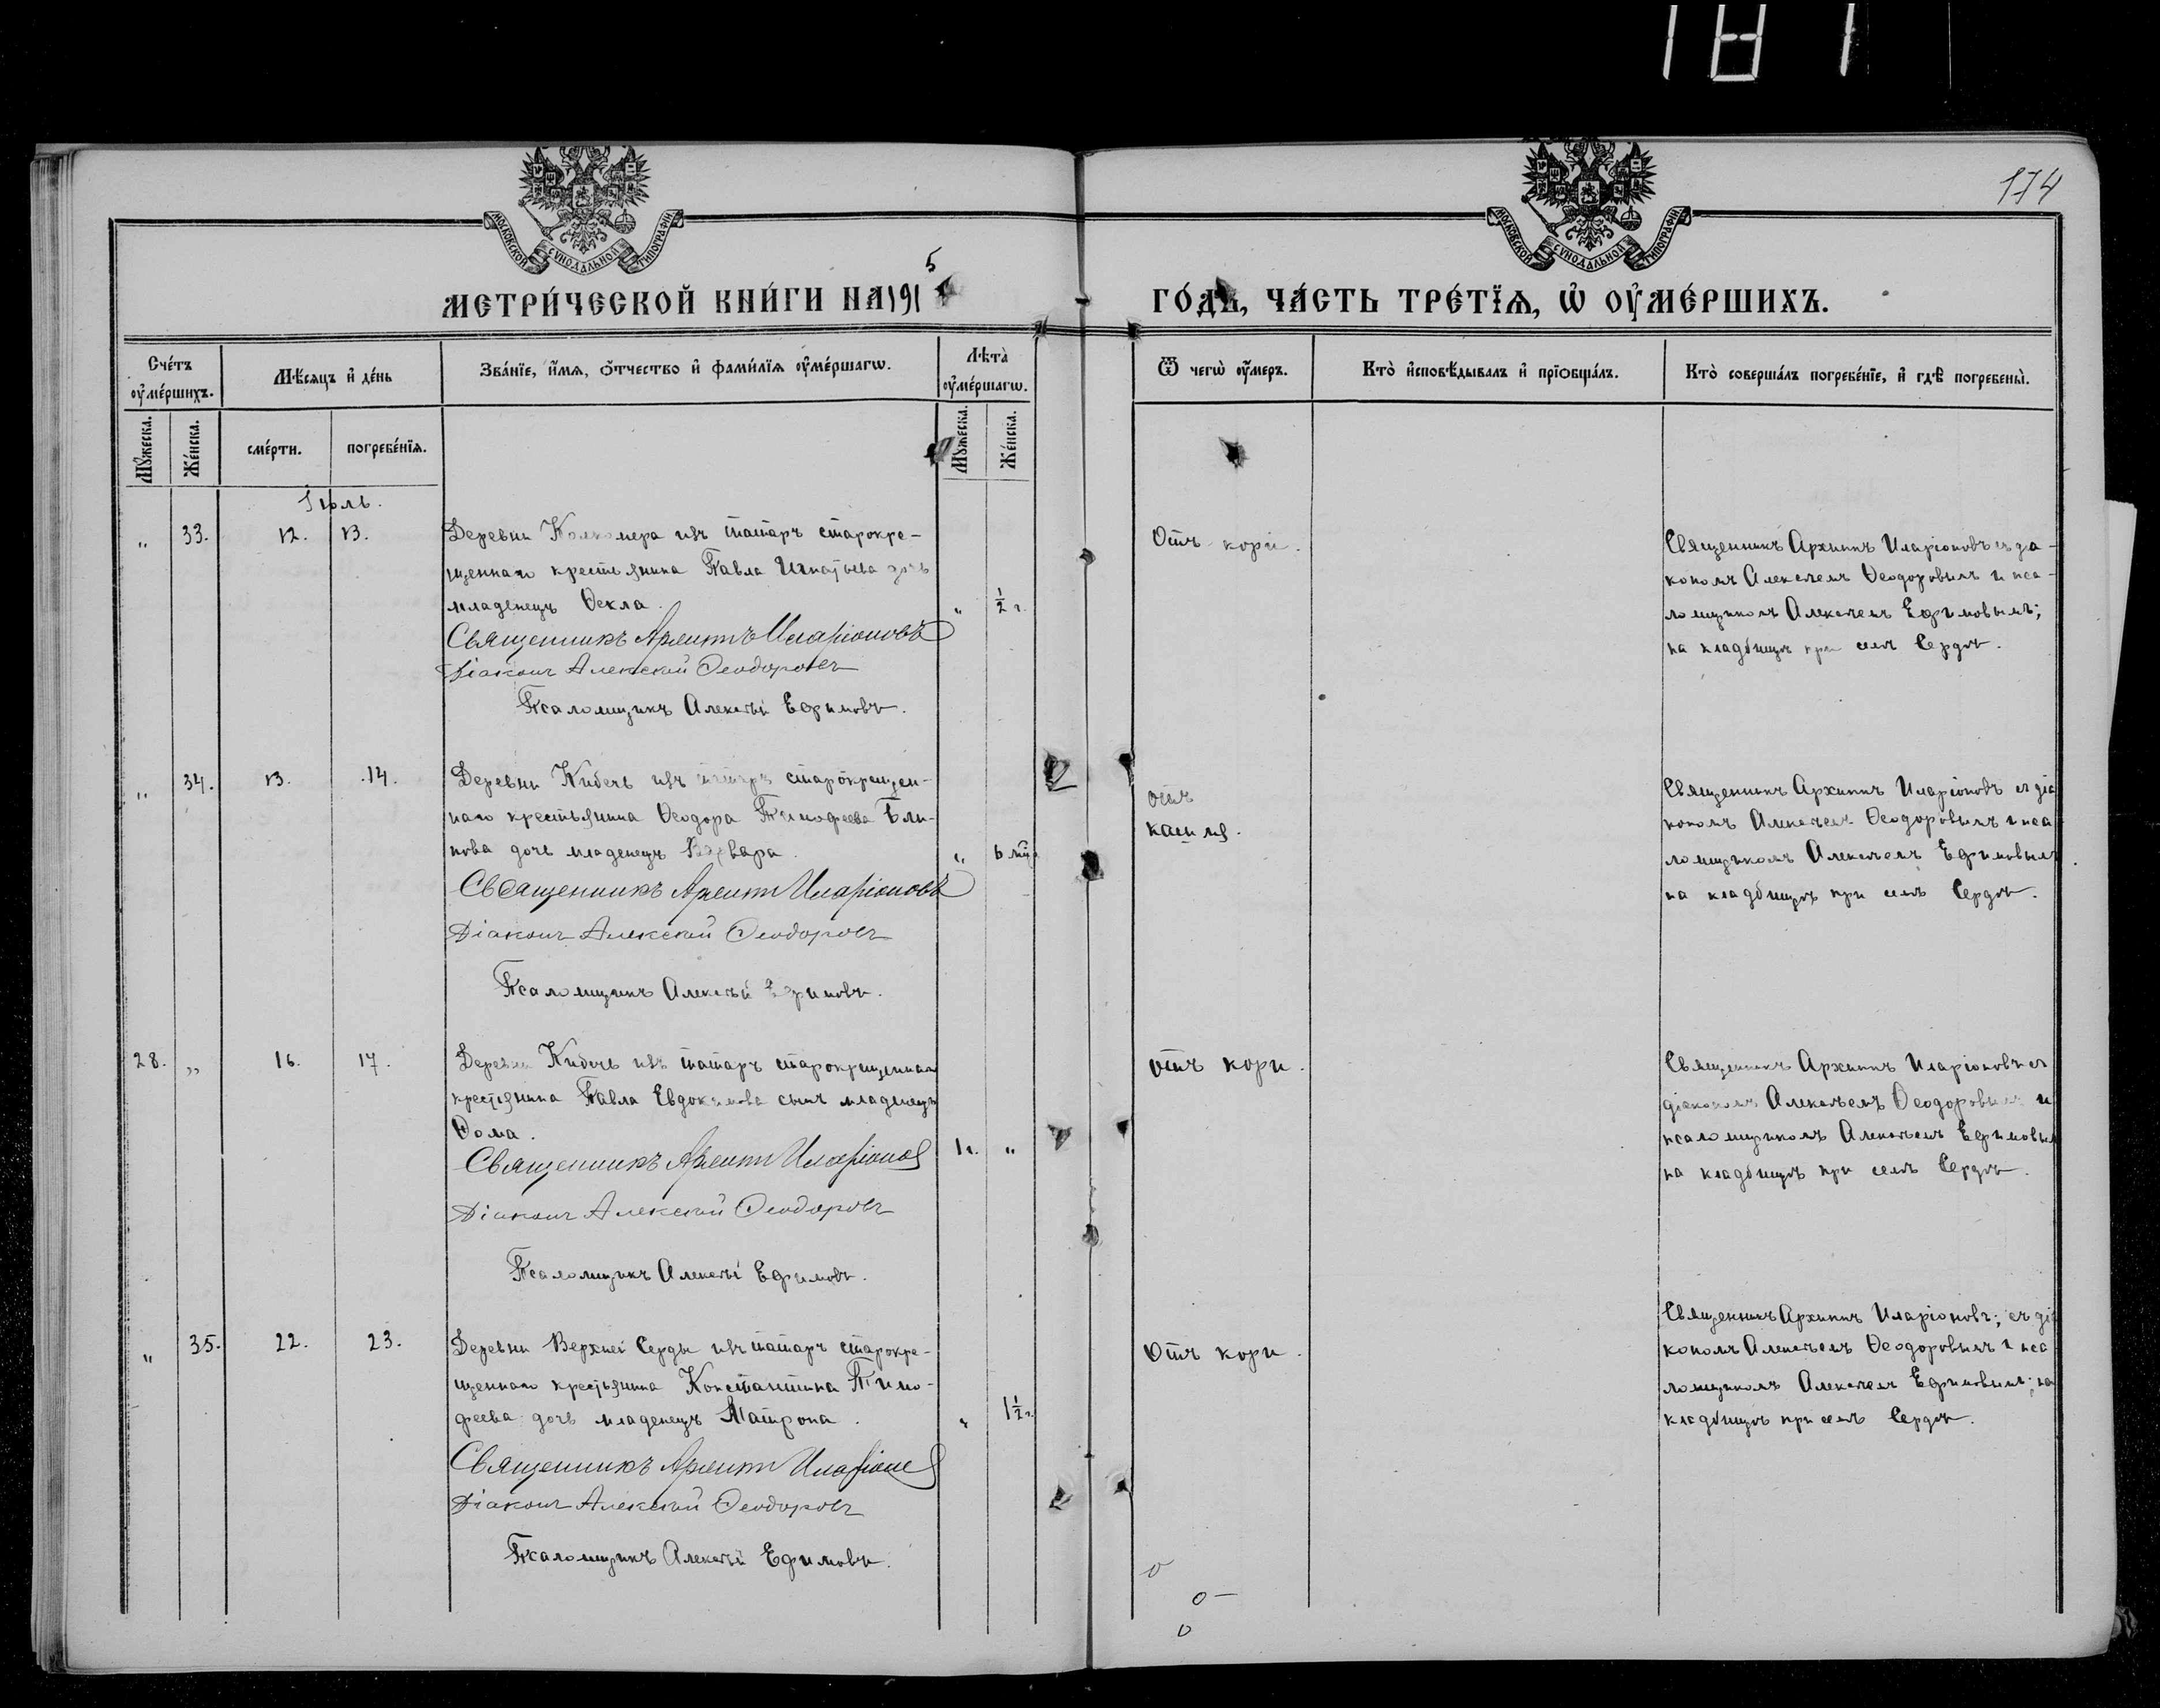 181
174
МОСКОВСКОЙ СѴНОДАЛЬНОЙ ТИПОГРАФІИ
МОСКОВСКОЙ СѴНОДАЛЬНОЙ ТИПОГРАФІИ
МЕТРИ́ЧЕСКОЙ КНИ́ГИ НА 1915
ГО́ДЪ, ЧА́СТЬ ТРЕ́ТЇѦ, Ѡ҆ ОУ҆МЕ́РШИХЪ.
Сче́тъ оу҆ме́ршихъ.
Мѣ́сѧцъ и҆ де́нь
Зва́нїе, и҆́мѧ, ѻ҆́тчество и҆ фами́лїѧ оу҆ме́ршагѡ.
Лѣ̀та оу҆ме́ршагѡ.
Ѿ чегѡ̀ оу҆́меръ.
Кто̀ и҆сповѣ́дывалъ и҆ прїѻбща́лъ.
Кто̀ соверша́лъ погребе́нїе, и҆ гдѣ̀ погребены̀.
Мꙋ́жеска.
Же́нска.
сме́рти.
погребе́нїѧ.
Мꙋ́жеска.
Же́нска.
Іюль.
„ 33. 12. 13.
Деревни изъ татаръ старокре-
щеннаго крестьянина Павла Игнатьева дочь
младенецъ Ѳекла.
„ ½ г.
Священникъ Архиппъ Иларіоновъ
Діаконъ Алексѣй Ѳеодоровъ
Псаломщикъ Алексѣй Ефимовъ.
Отъ кори.
Священникъ Архиппъ Иларіоновъ съ діа-
кономъ Алексѣемъ Ѳеодоровымъ и пса-
ломщикомъ Алексѣемъ Ефимовымъ;
на кладбищѣ при селѣ Сердѣ.
„ 34. 13. 14.
Деревни Кибечь изъ татаръ старокрещен-
наго крестьянина Ѳеодора Тимофеева Бли-
нова дочь младенецъ Варвара.
„ 6 мѣс.
Священникъ Архиппъ Иларіоновъ
Діаконъ Алексѣй Ѳеодоровъ
Псаломщикъ Алексѣй Ефимовъ.
отъ
кашля.
Священникъ Архиппъ Иларіоновъ съ діа
кономъ Алексѣемъ Ѳеодоровымъ и пса
ломщикомъ Алексѣемъ Ефимовымъ
на кладбищѣ при селѣ Сердѣ.
28. „ 16. 17.
Деревни Кибечь изъ татаръ старокрещеннаго
крестьянина Павла Евдокимова сынъ младенецъ
Ѳома.
1 г. „
Священникъ Архиппъ Иларіоновъ
Діаконъ Алексѣй Ѳеодоровъ
Псаломщикъ Алексѣй Ефимовъ.
отъ кори.
Священникъ Архиппъ Иларіоновъ съ
діакономъ Алексѣемъ Ѳеодоровымъ и
псаломщикомъ Алексѣемъ Ефимовым
на кладбищѣ при селѣ Сердѣ.
„ 35. 22. 23.
Деревни Верхней Серды изъ татаръ старокре-
щеннаго крестьянина Константина Тимо-
феева дочь младенецъ Матрона.
„ 1½ г.
Священникъ Архиппъ Иларіоновъ
Діаконъ Алексѣй Ѳеодоровъ
Псаломщикъ Алексѣй Ефимовъ.
Отъ кори.
Священникъ Архиппъ Иларіоновъ; съ діа
кономъ Алексѣемъ Ѳеодоровымъ и пса
ломщикомъ Алексѣемъ Ефимовымъ; на
кладбищѣ при селѣ Сердѣ.